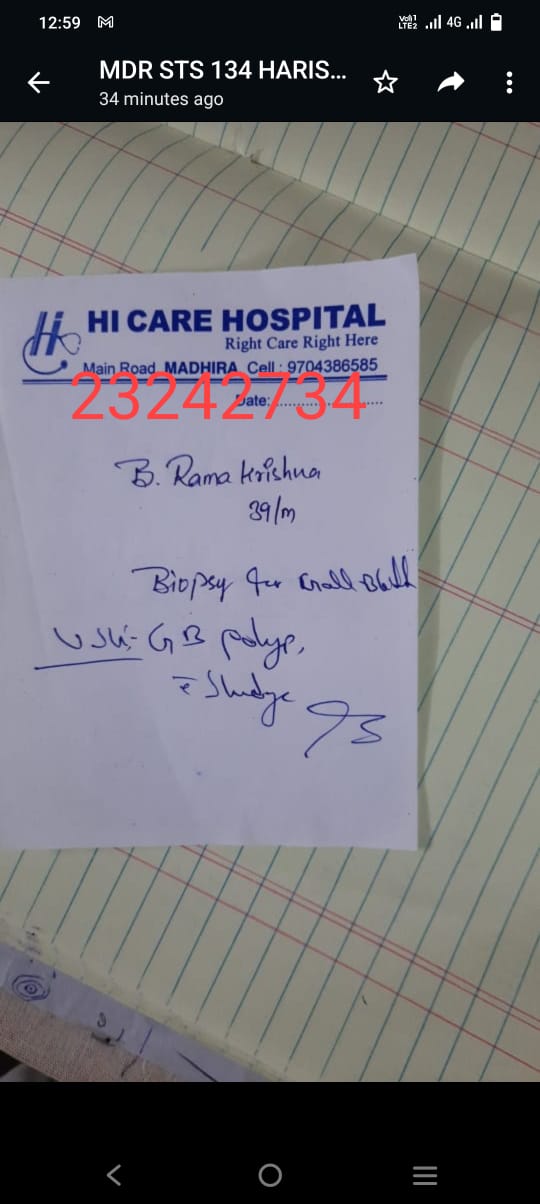 12:59
4G
MDR STS 134 HARIS...
34 minutes ago
Hi HI CARE HOSPITAL
Right Care Right Here
Main Road, MADHIRA, Cell : 9704386585
23242734
Date:....................
B. Rama Krishna
39/m
Biopsy for Gall Bladder
USG:- GB polyp,
c̅ Sludge